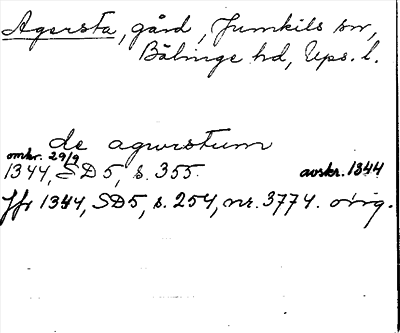 Agersta, gård, Jumkils sn,
Bälinge hd, Ups. l.
de agurstum
omkr. 29/9
1344, SD 5, s. 355. avskr. 1344
Jfr 1344, SD5, s. 254, nr. 3774. orig.